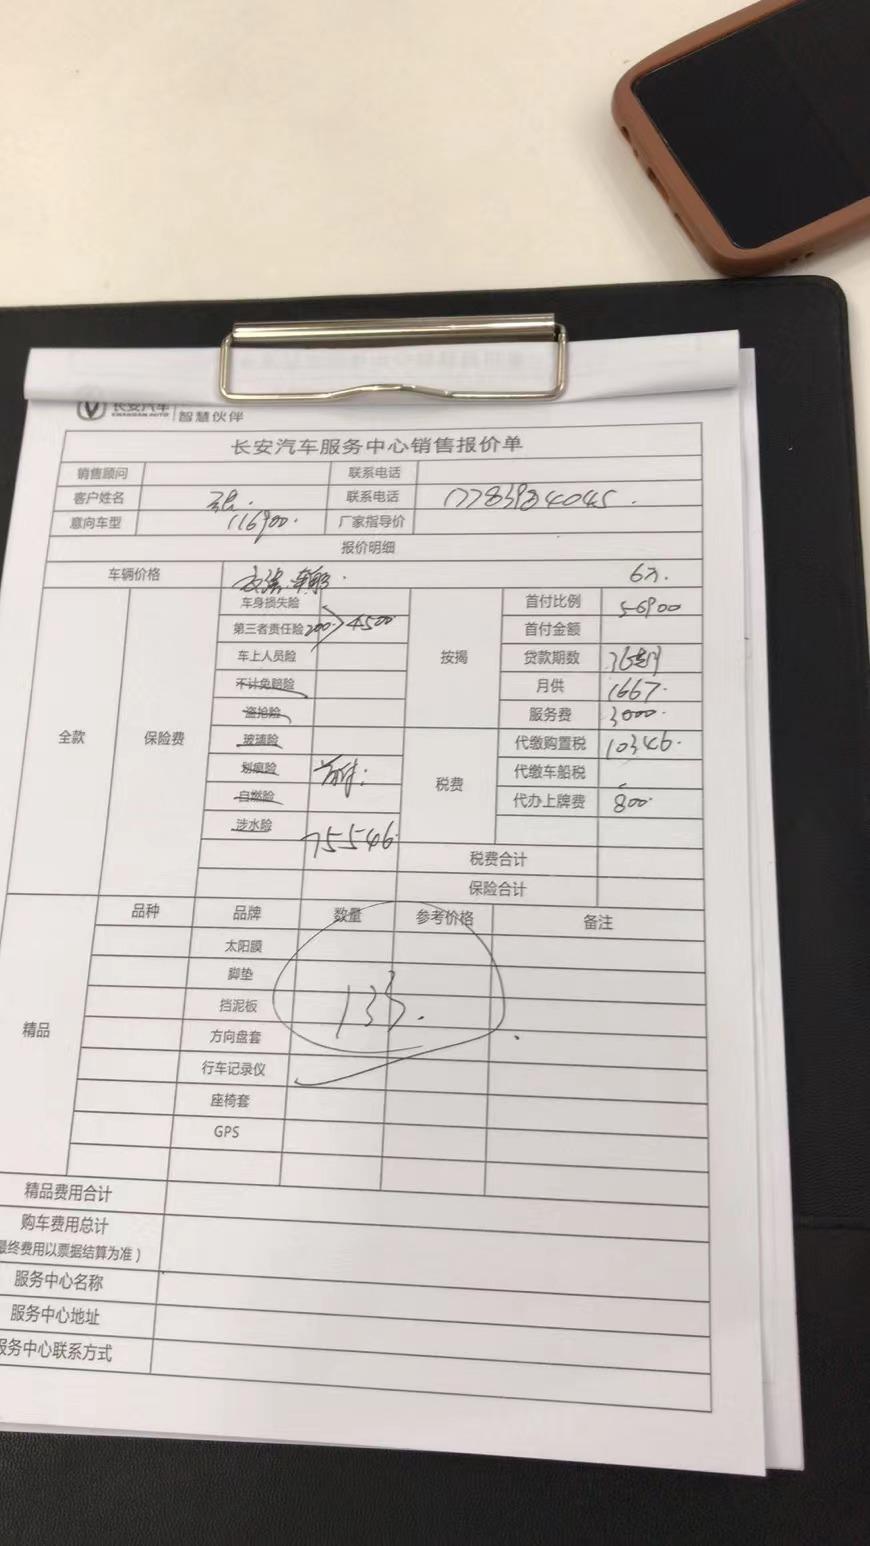 长安汽车
CHANGAN AUTO
智慧伙伴
长安汽车服务中心销售报价单
销售顾问 联系电话
客户姓名 联系电话
意向车型 116900. 厂家指导价
报价明细
车辆价格 6万.
全款 保险费 车身损失险 按揭 首付比例 56900
第三者责任险 200. 4500 首付金额
车上人员险 贷款期数 36期
不计免赔险 月供 1667.
盗抢险 服务费 3000.
玻璃险 税费 代缴购置税 10346.
划痕险 首付: 代缴车船税
自燃险 代办上牌费 800.
涉水险 75546.
税费合计
保险合计
精品 品种 品牌 数量 参考价格 备注
太阳膜
脚垫
挡泥板 133.
方向盘套
行车记录仪
座椅套
GPS
精品费用合计
购车费用总计
最终费用以票据结算为准）
服务中心名称
服务中心地址
服务中心联系方式